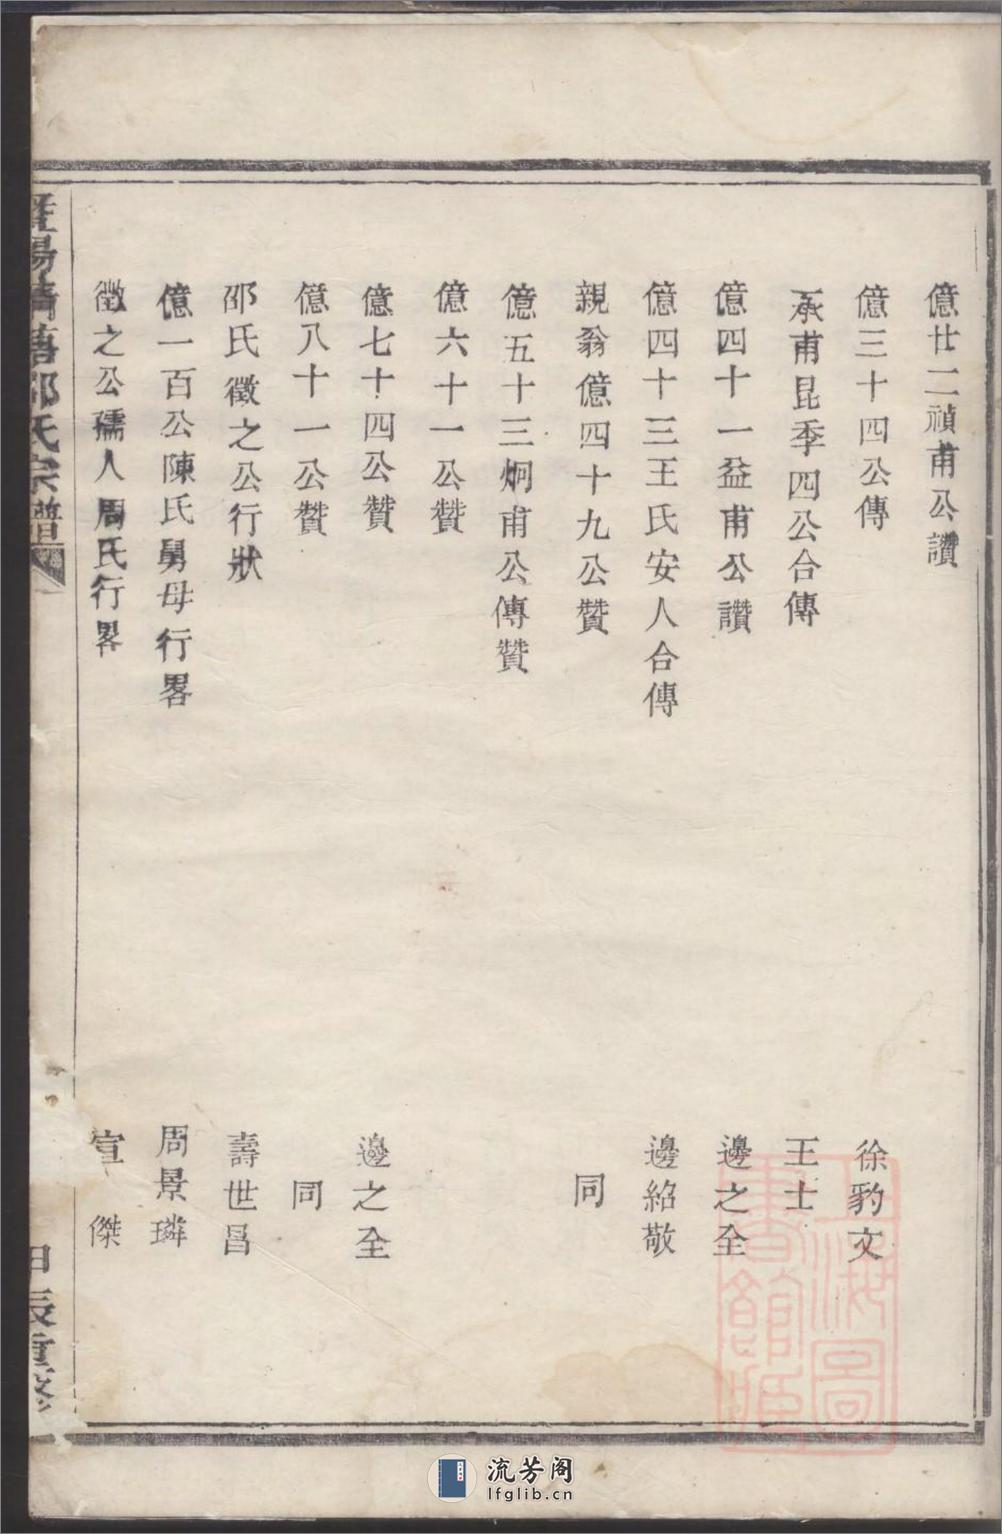 億廿二禎甫公讚
億三十四公傳 徐豹文
承甫昆季四公合傳 王士
億四十一益甫公讚 邊之全
億四十三王氏安人合傳 邊紹敬
親翁億四十九公贊 同
億五十三炯甫公傳贊
億六十一公贊
億七十四公贊 邊之全
億八十一公贊 同
邵氏徵之公行狀 壽世昌
億一百公陳氏舅母行畧 周景璘
徵之公孺人周氏行畧 宣傑
暨陽 邵氏宗譜
甲辰重修
上海圖書館藏
流芳阁
lfglib.cn